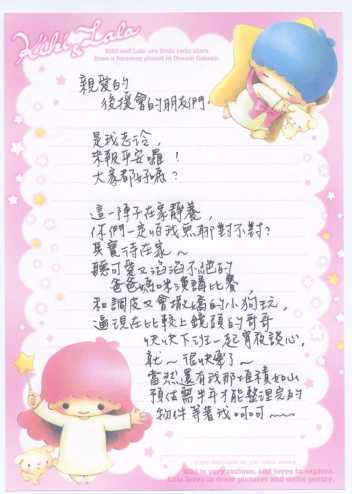 Kiki & Lala
Kiki and Lala are little twin stars
from a faraway planet in Dream Galaxy.
親愛的
後援會的朋友們
是我志玲,
來報平安囉!
大家都好嗎?
這一陣子在家靜養,
你們一定怕我無聊對不對?
其實待在家~
聽可愛又滔滔不絕的
爸爸媽咪演講比賽,
和調皮又會撒嬌的小狗玩,
逼現在比較上鏡頭的哥哥
快快下班一起宵夜談心,
就~很快樂了~
當然還有我那堆積如山
預估需半年才能整理完的
物件等著我呵呵~~~
Kiki is very curious, and loves to explore.
Lala loves to draw pictures and write poetry.